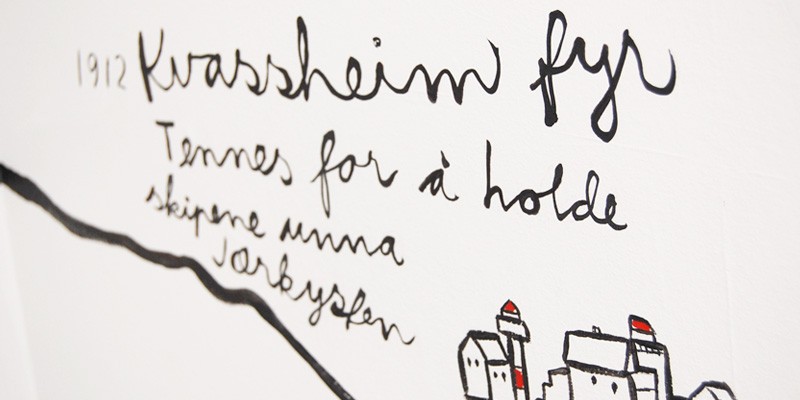 1912 Kvassheim fyr
Tennes for å holde
skipene unna
Jærkysten